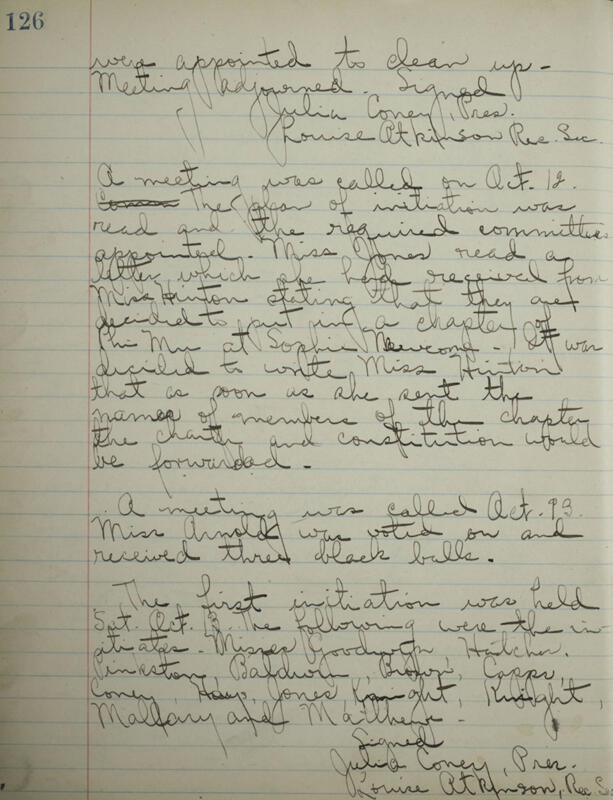 126
were appointed to clean up -
Meeting adjourned. Signed
Julia Coney, Pres.
Louise Atkinson Rec. Sec.
A meeting was called on Oct. 12.
The plan of initiation was
read and the required committees
appointed. Miss Jones read a
letter which she had received from
Miss Hinton stating that they
decided to put in a chapter of
Phi Mu at Sophie Newcomb - It was
decided to write Miss Hinton
that as soon as she sent the
names of members of the chapter
the and constitution would
be forwarded -
A meeting was called Oct. 13.
Miss Arnold was voted on and
received three black balls.
The first initiation was held
Sat. Oct. The following were the in-
itiates - Misses Goodwyn Hatcher,
Pinkston, Baldwin, Brown, Capps,
Coney, Jones Knight, Knight,
Mallary and
Signed
Julia Coney, Pres.
Louise Atkinson, Rec. S